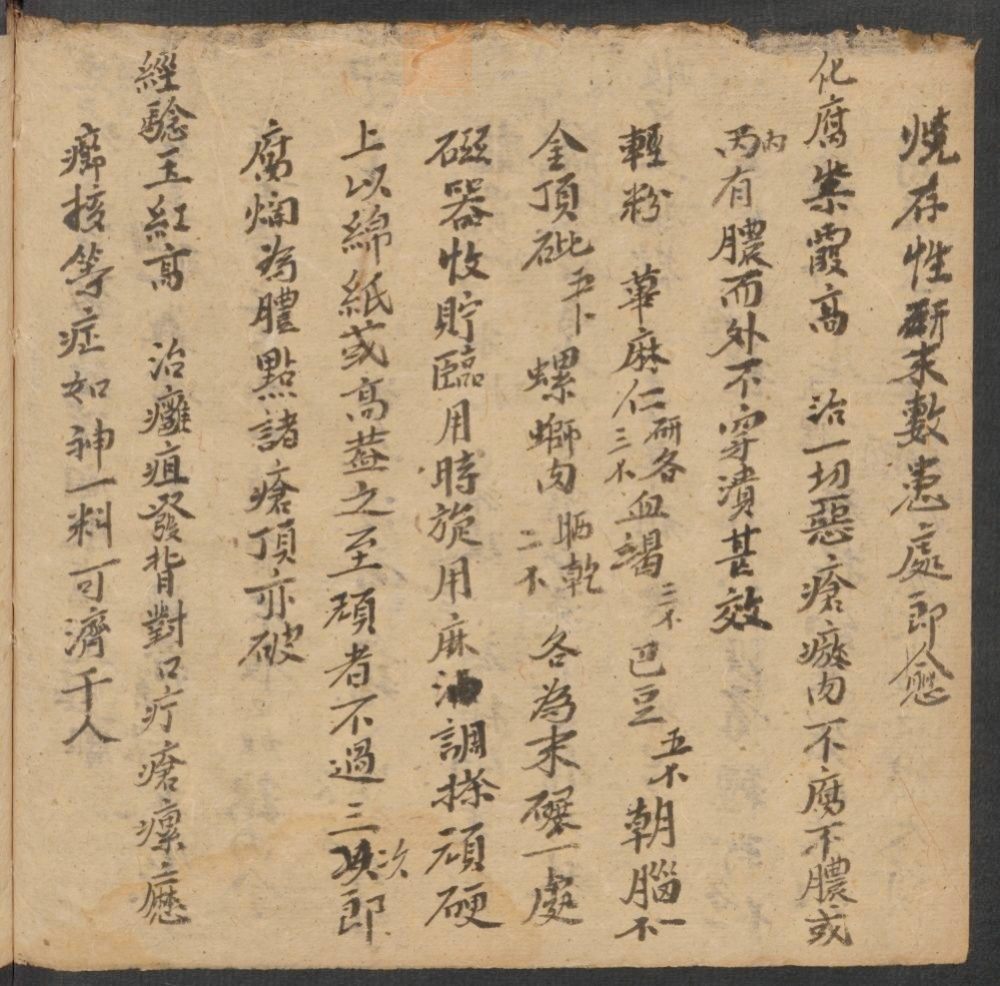 燒存性研末敷患處即愈
化腐紫霞高 治一切惡瘡瘀肉不腐不膿或
内有膿而外不穿潰甚效
輕粉 萆麻仁研各三不 血竭三不 巴豆五不 朝腦一不
金頂砒五卜 螺螄肉晒乾二不 各為末礶一處
磁器收貯臨用時旋用麻油調搽頑硬
上以綿紙或高蓋之至頑者不過三次即
腐爛為膿點諸瘡頂亦破
經驗玉紅高 治癰疽發背對口疔瘡瘰二癧
癤接等症如神一料可濟千人